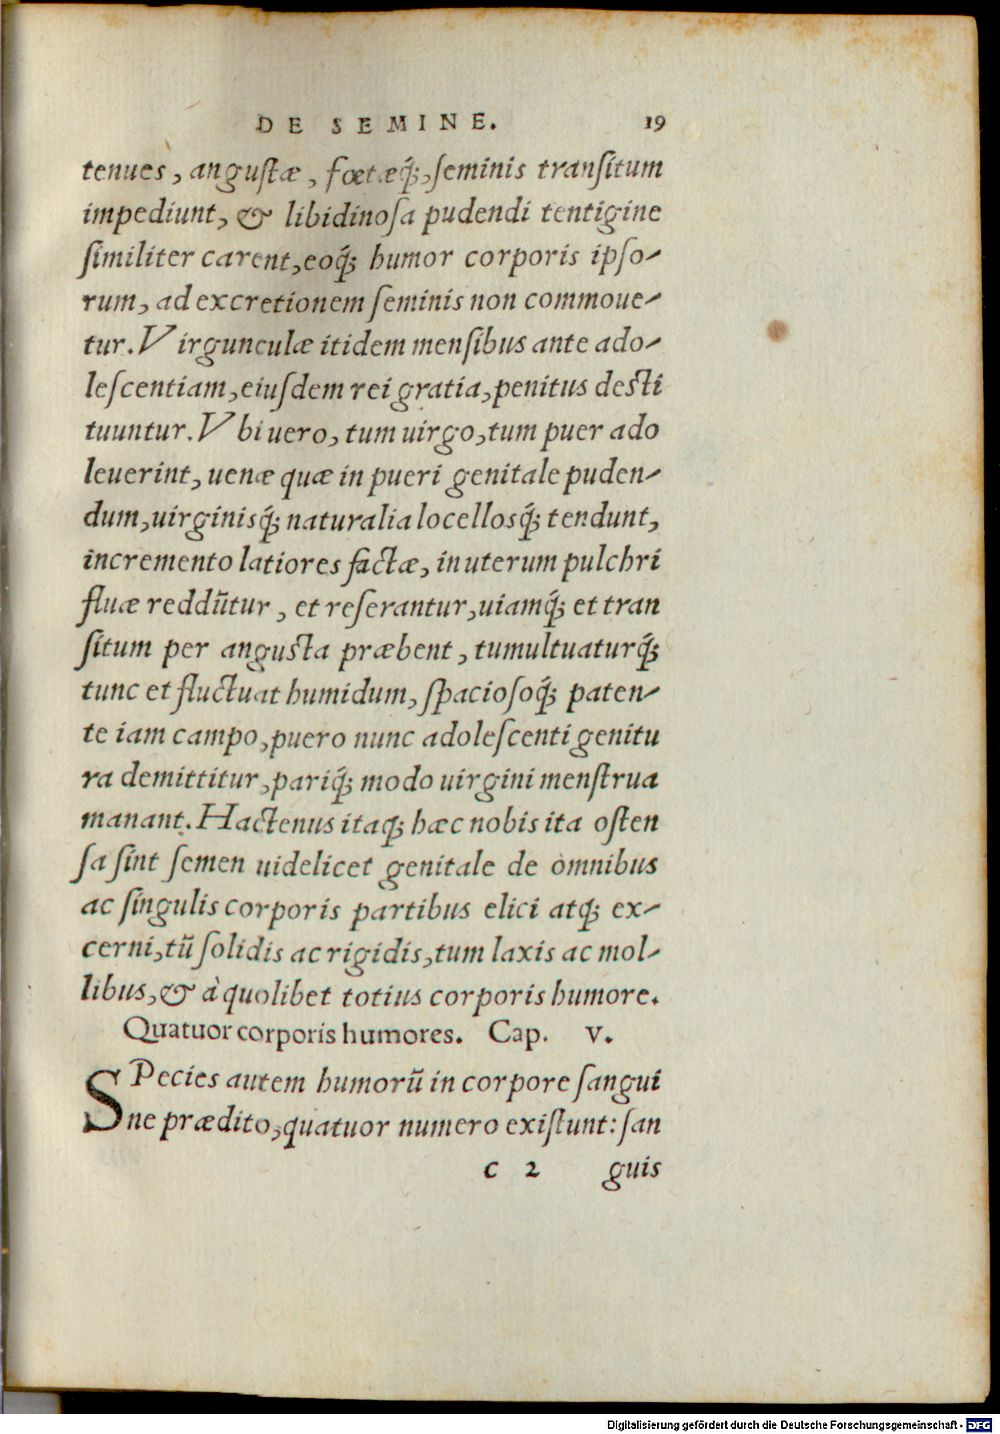 DE SEMINE. 19
tenues, angustæ, fœtæq́;, seminis transitum
impediunt, & libidinosa pudendi tentigine
similiter carent, eoq́; humor corporis ipso-
rum, ad excretionem seminis non commoue-
tur. Virgunculæ itidem mensibus ante ado-
lescentiam, eiusdem rei gratia, penitus desti
tuuntur. Vbi uero, tum uirgo, tum puer ado
leuerint, uenæ quæ in pueri genitale puden-
dum, uirginisq́; naturalia locellosq́; tendunt,
incremento latiores factæ, in uterum pulchri
fluæ reddũtur, et reserantur, uiamq́; et tran
situm per angusta præbent, tumultuaturq́;
tunc et fluctuat humidum, spaciosoq́; paten-
te iam campo, puero nunc adolescenti genitu
ra demittitur, pariq́; modo uirgini menstrua
manant. Hactenus itaq; hæc nobis ita osten
sa sint semen uidelicet genitale de omnibus
ac singulis corporis partibus elici atq; ex-
cerni, tũ solidis ac rigidis, tum laxis ac mol-
libus, & à quolibet totius corporis humore.
Quatuor corporis humores. Cap. V.
SPecies autem humorũ in corpore sangui
ne prædito, quatuor numero existunt: san
c 2 guis
Digitalisierung gefördert durch die Deutsche Forschungsgemeinschaft - DFG